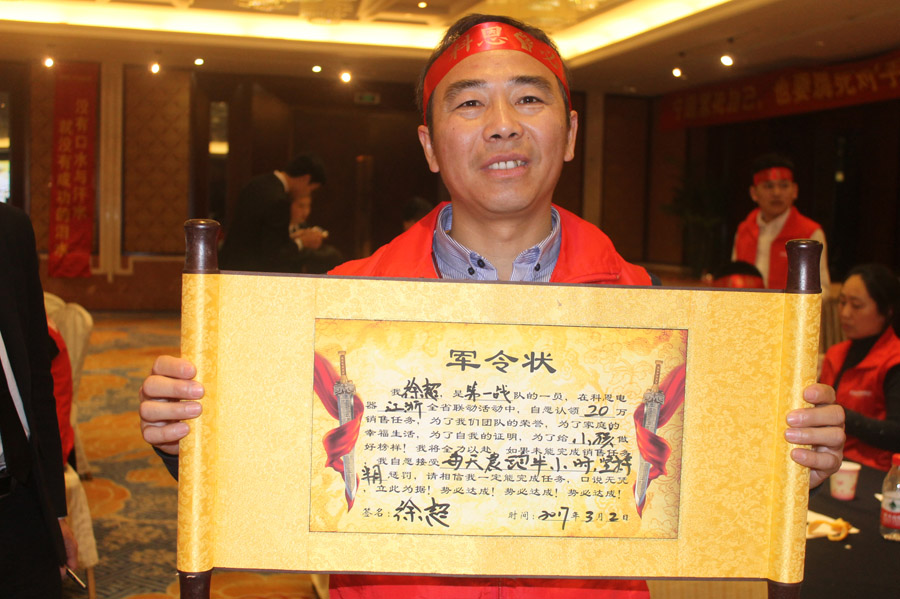 科恩
没有口水与汗水
就没有成功的泪水
军令状
我徐超，是第一战队的一员，在科恩电
器江浙全省联动活动中，自愿认领20万
销售任务，为了我们团队的荣誉，为了家庭的
幸福生活，为了自我的证明，为了给小孩做
好榜样！我将全力以赴，如果未能完成销售任务
我自愿接受每天晨跑半小时，坚持
半月惩罚，请相信我一定能完成任务，口说无凭
，立此为据！势必达成！势必达成！势必达成！
签名：徐超 时间：2017年3月2日